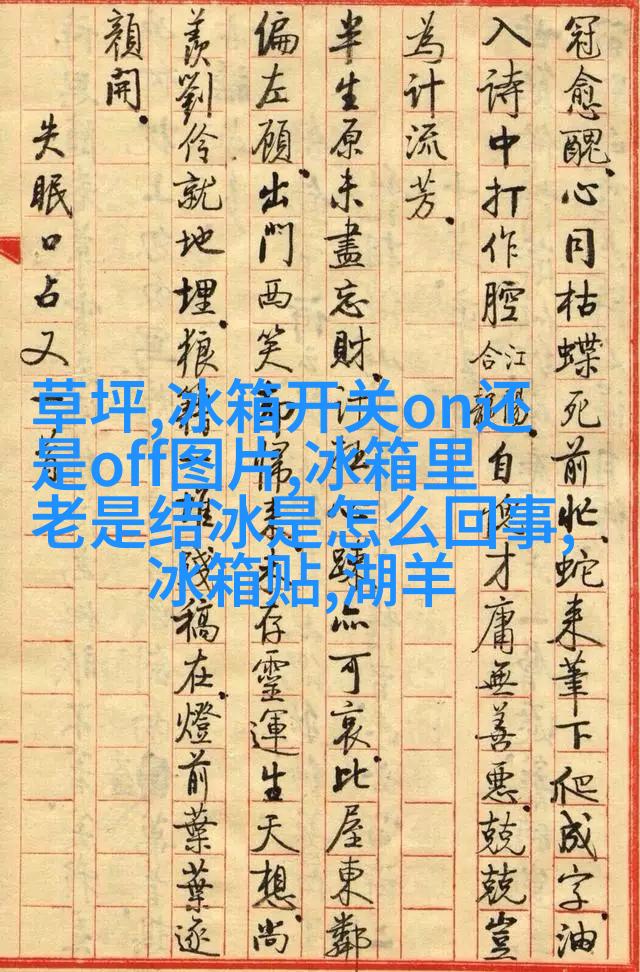 冠愈醜。心同枯蝶死前忙。蛇来筆下爬成字。油
入詩中打作腔江陽合。自愧才庸無善惡。兢兢豈
為計流芳。
半生原未盡忘財。計心疎亦可哀。比屋東鄰
偏左顧。出門西笑却歸来。存靈運生天想。尚
羨劉伶就地埋。狼籍堆殘稿在。燈前葉葉逐
顏開。
失眠口占又一首
草坪,冰箱开关on还
是off图片,冰箱里
老是结冰是怎么回事,
冰箱贴,湖羊